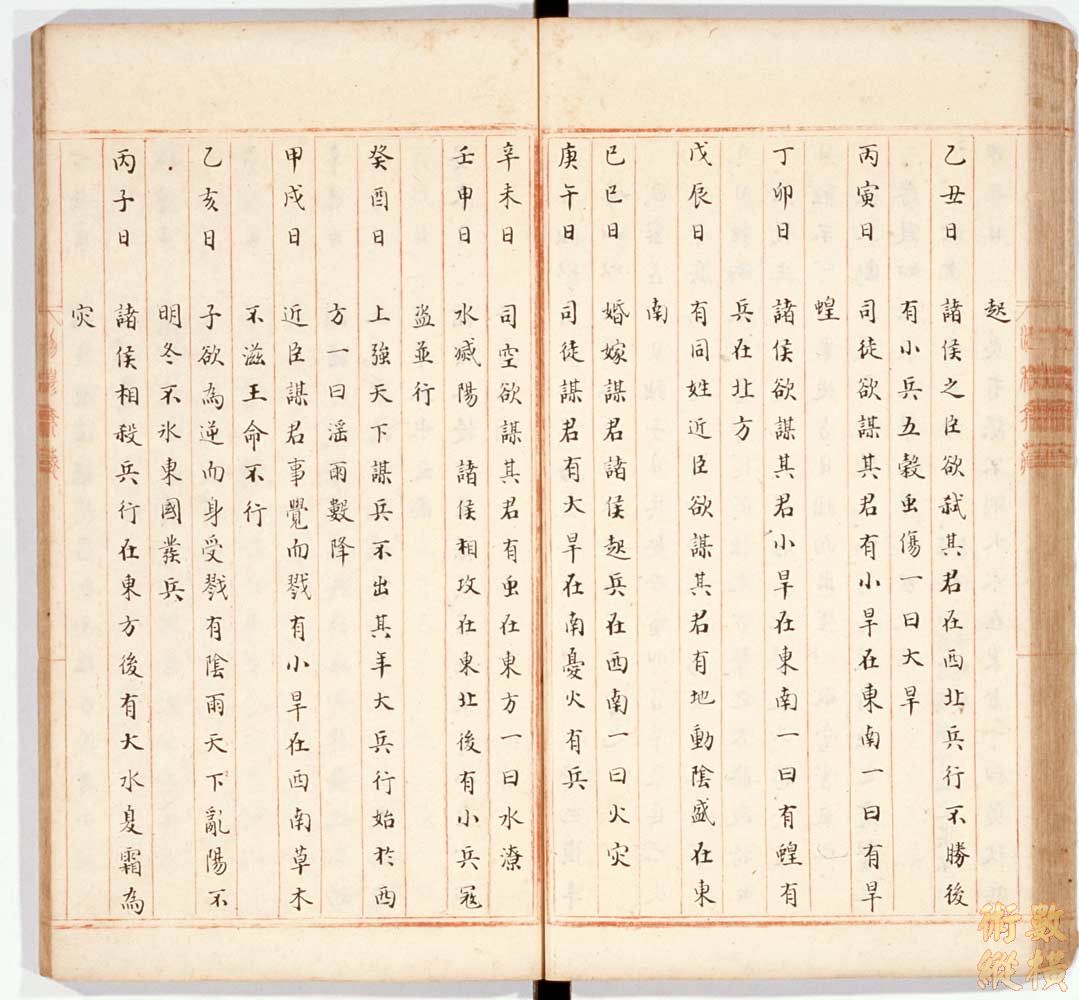 起
乙丑日　諸侯之臣欲弒其君在西北兵行不勝後
有小兵五穀虫傷一曰大旱
丙寅日　司徒欲謀其君有小旱在東南一曰有旱
蝗
丁卯日　諸侯欲謀其君小旱在東南一曰有蝗有
兵在北方
戊辰日　有同姓近臣欲謀其君有地動陰盛在東
南
己巳日　婚嫁謀君諸侯起兵在西南一曰火灾
庚午日　司徒謀君有大旱在南憂火有兵
辛未日　司空欲謀其君有虫在東方一曰水潦
壬申日　水减陽諸侯相攻在東北後有小兵寇
盗並行
癸酉日　上強天下謀兵不出其年大兵行始於西
方一曰滛雨數降
甲戌日　近臣謀君事覺而戮有小旱在西南草木
不滋王命不行
乙亥日　子欲為逆而身受戮有陰雨天下亂陽不
明冬不氷東國發兵
丙子日　諸侯相殺兵行在東方後有大水夏霜為
灾
術數縱橫